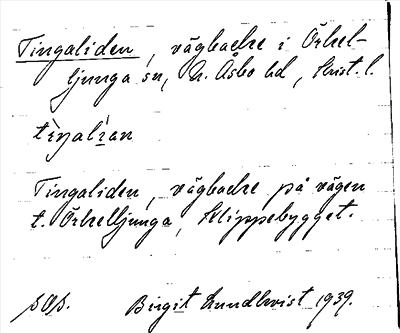 Tingaliden, vägbacke i Örkel-
ljunga sn, N. Åsbo hd, Krist. l.
Tingaliden, vägbacke på vägen
t. Örkelljunga, Klippebygget.
Birgit Lundkvist 1939.